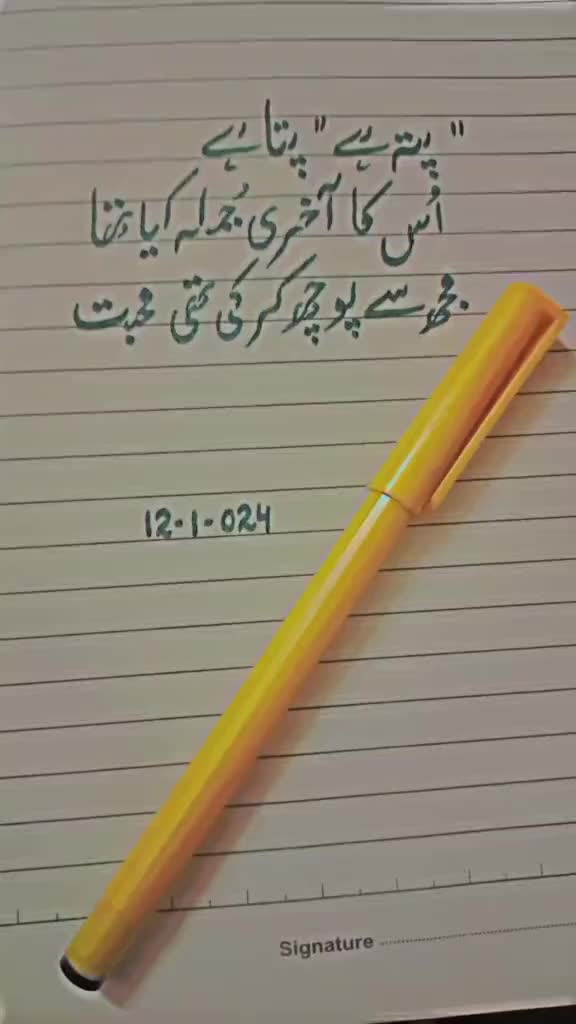 "پتہ ہے" پتا ہے
اُس کا آخری جُملہ کیا تھا
مجھ سے پوچھ کر کی تھی محبت
12.1.024
Signature